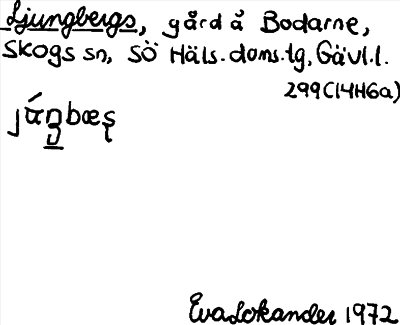 Ljungbergs, gård å Bodarne,
Skogs sn, SÖ Häls. doms.tg, Gävl.l.
299(14H6a)
Eva Lokander 1972